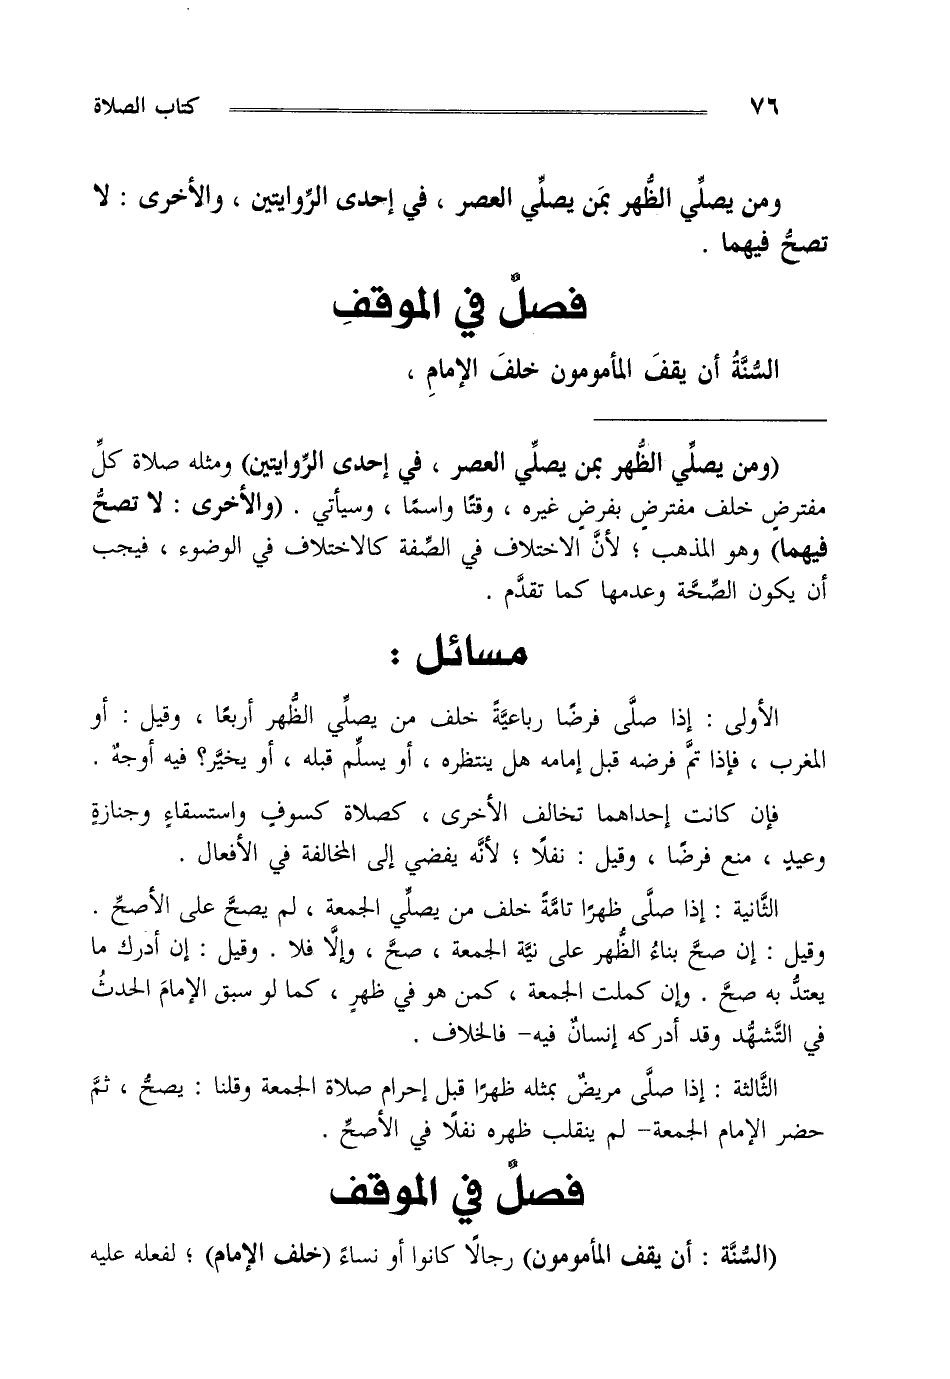 ٧٦ كتاب الصلاة
ومن يصلِّي الظُّهر بمَن يصلِّي العصر ، في إحدى الرِّوايتين ، والأخرى : لا
تصحُّ فيهما .
فصلٌ في الموقفِ
السُّنَّةُ أن يقفَ المأمومون خلفَ الإمامِ ،
(ومن يصلِّي الظُّهر بمن يصلِّي العصر ، في إحدى الرِّوايتين) ومثله صلاة كلِّ
مفترضٍ خلف مفترضٍ بفرضٍ غيره ، وقتًا واسمًا ، وسيأتي . (والأخرى : لا تصحُّ
فيهما) وهو المذهب ؛ لأنَّ الاختلاف في الصِّفة كالاختلاف في الوضوء ، فيجب
أن يكون الصِّحَّة وعدمها كما تقدَّم .
مسائل :
الأولى : إذا صلَّى فرضًا رباعيَّةً خلف من يصلِّي الظُّهر أربعًا ، وقيل : أو
المغرب ، فإذا تمَّ فرضه قبل إمامه هل ينتظره ، أو يسلِّم قبله ، أو يخيَّر؟ فيه أوجهٌ .
فإن كانت إحداهما تخالف الأخرى ، كصلاة كسوفٍ واستسقاءٍ وجنازةٍ
وعيدٍ ، منع فرضًا ، وقيل : نفلًا ؛ لأنَّه يفضي إلى المخالفة في الأفعال .
الثَّانية : إذا صلَّى ظهرًا تامَّةً خلف من يصلِّي الجمعة ، لم يصحَّ على الأصحِّ .
وقيل : إن صحَّ بناءُ الظُّهر على نيَّة الجمعة ، صحَّ ، وإلَّا فلا . وقيل : إن أدرك ما
يعتدُّ به صحَّ . وإن كملت الجمعة ، كمن هو في ظهرٍ ، كما لو سبق الإمامَ الحدثُ
في التَّشهُّد وقد أدركه إنسانٌ فيه– فالخلاف .
الثَّالثة : إذا صلَّى مريضٌ بمثله ظهرًا قبل إحرام صلاة الجمعة وقلنا : يصحُّ ، ثمَّ
حضر الإمام الجمعة– لم ينقلب ظهره نفلًا في الأصحِّ .
فصلٌ في الموقف
(السُّنَّة : أن يقف المأمومون) رجالًا كانوا أو نساءً (خلف الإمام) ؛ لفعله عليه